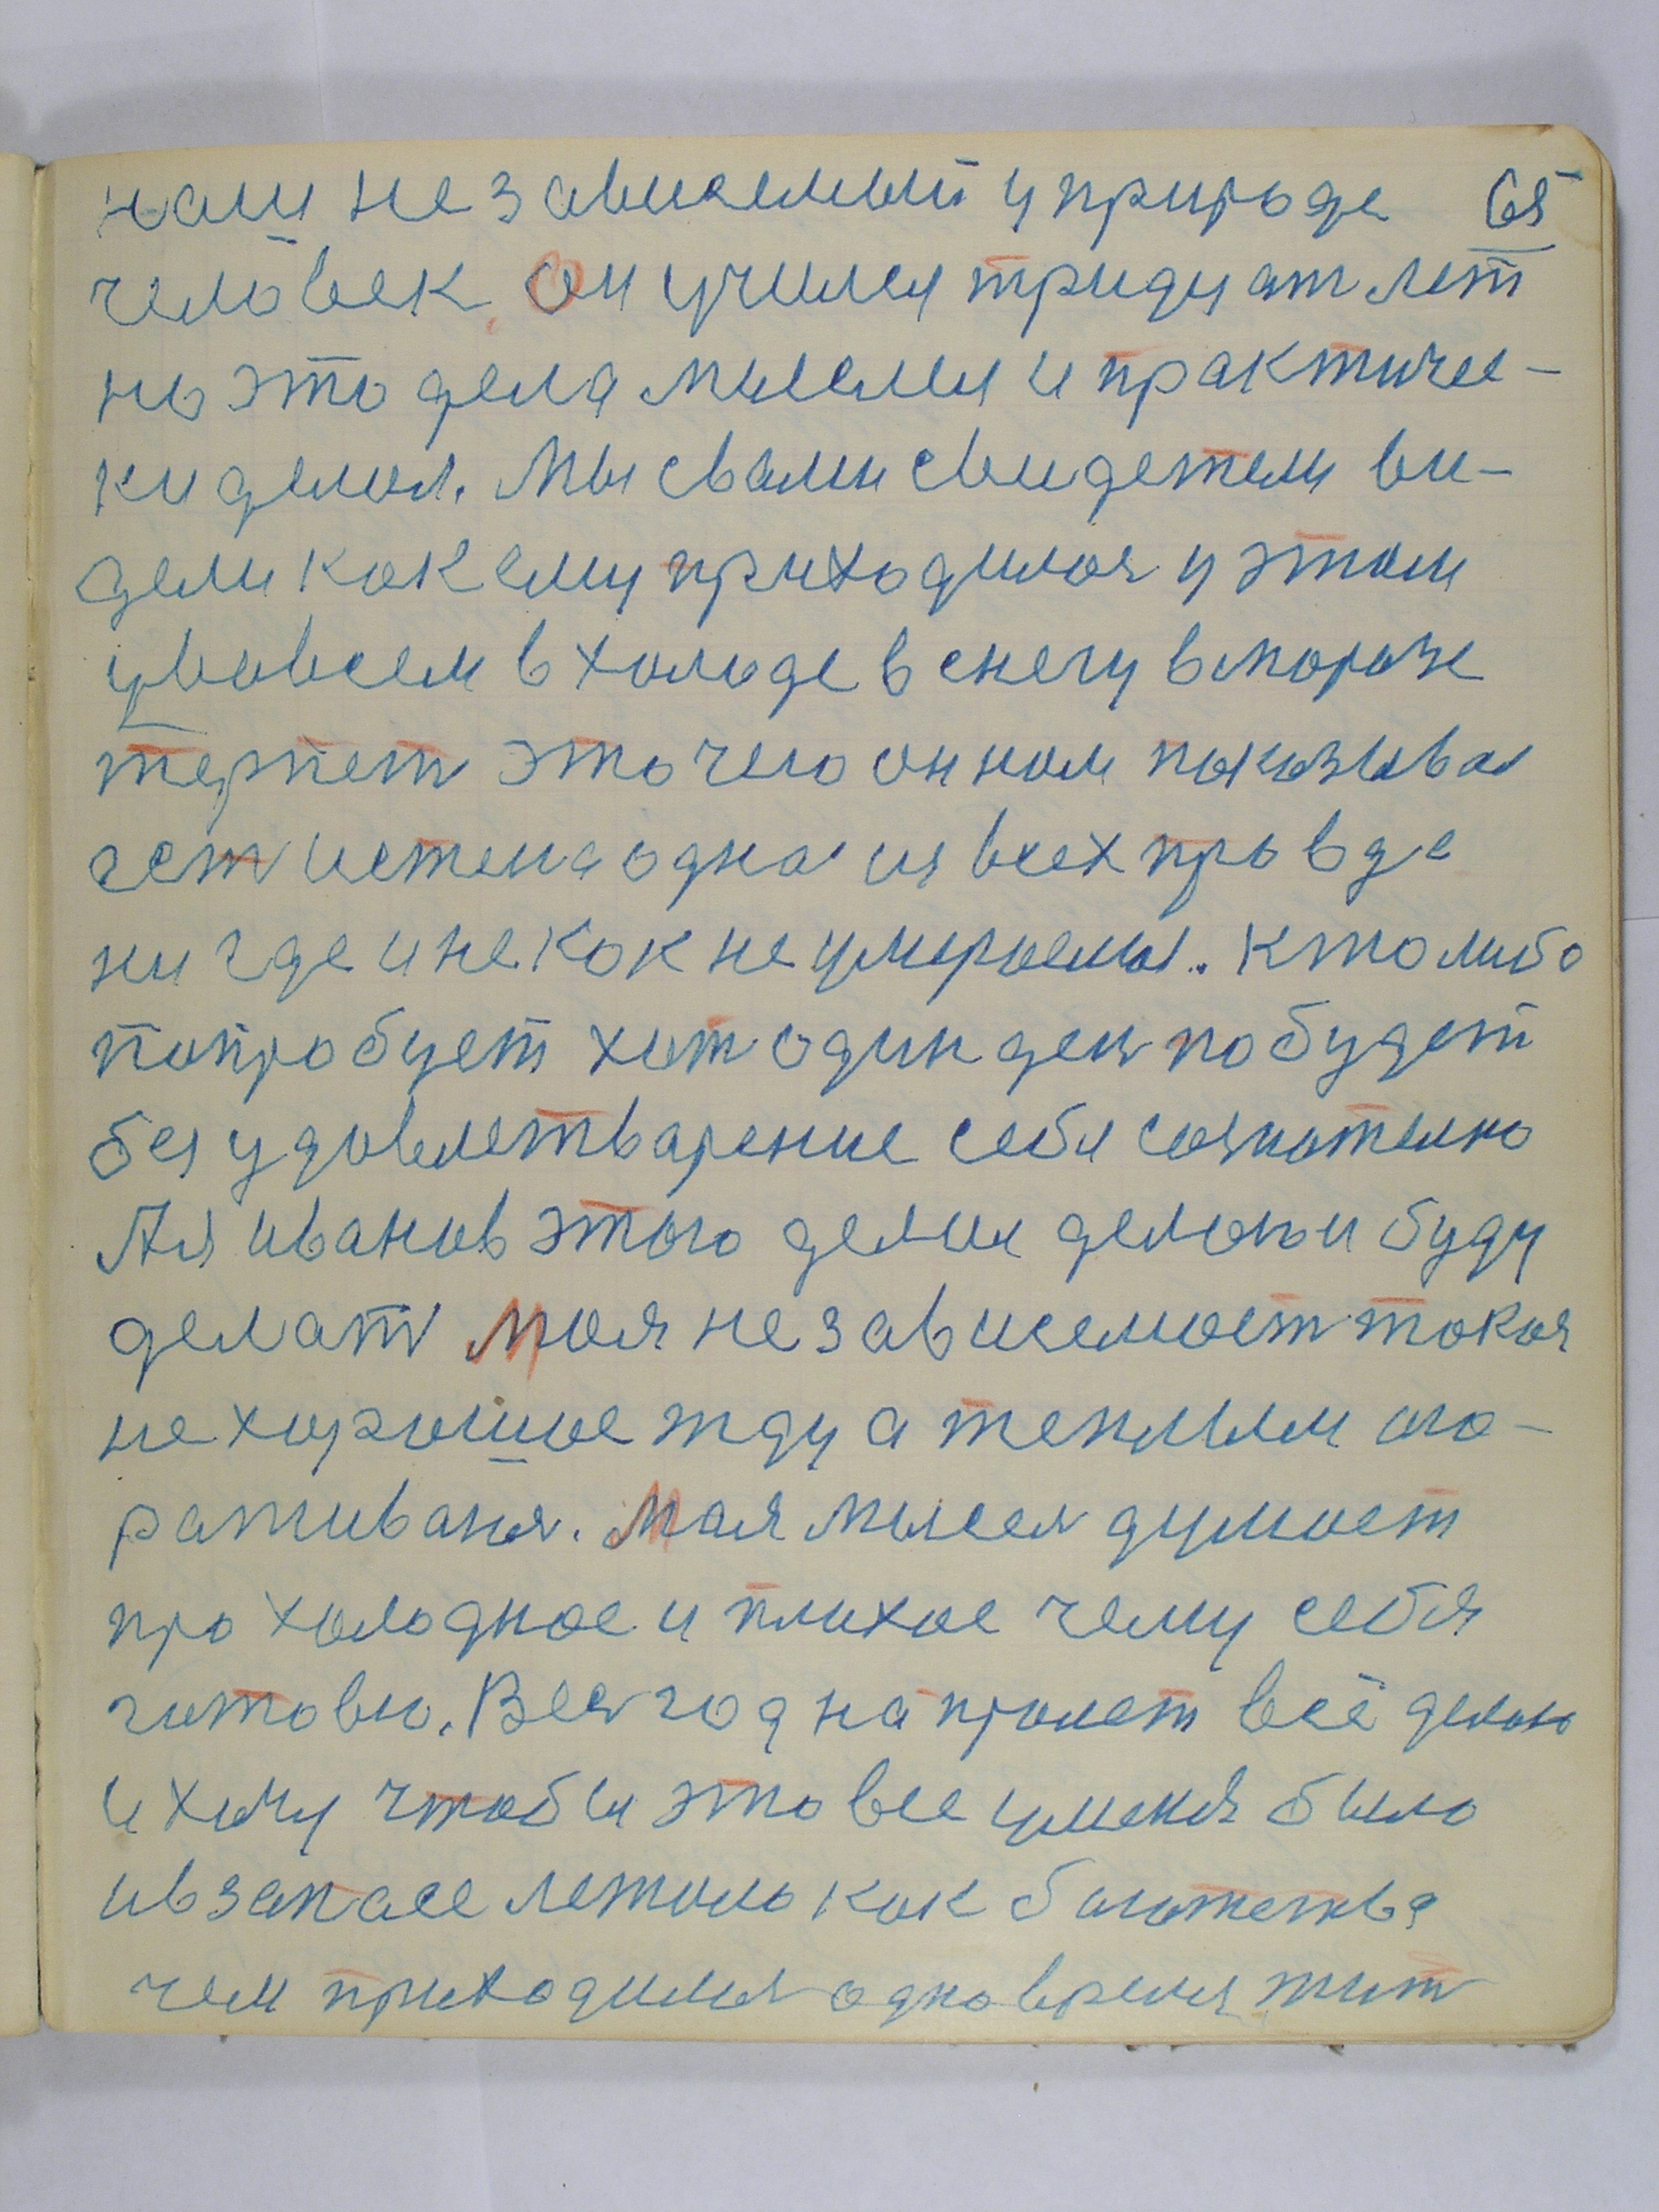 наш не зависемый у природе 65
человек. Он учился тридцат лет
но это дела мыслия и практичес-
ки делал. Мы свами свидетели ви-
дели как ему приходилося у этом
увовсем в холоде в снегу в морозе
терпет это чего он нам показывал
ест истена одна из всех провде
ни где и не как не умираемы. Кто либо
попробует хот один ден побудет
без удовлетварение себя сознателно
А я иванов этого делал делаю и буду
делат Моя не зависемост такая
не хорошое жду а теплым ого-
раживаня. Мая мысля думает
про холодное и плихое чему себя
готовлю. Вся год на пролет всё делаю
и хочу чтобы это все уменя было
и в запасе летало как богатства
чем приходился одно время жит